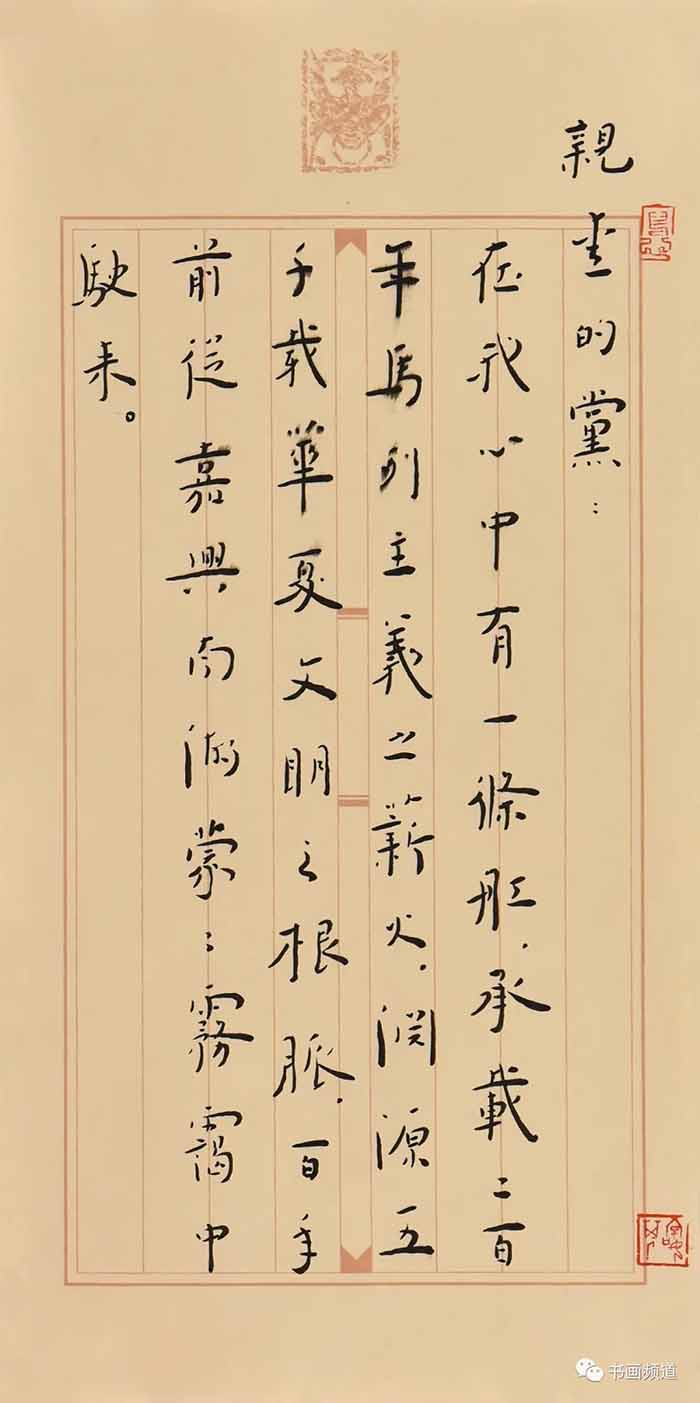 親愛的黨：
在我心中有一條船，承載二百
年馬列主義之薪火，淵源五
千載華夏文明之根脈，百年
前從嘉興南湖蒙〻霧靄中
駛来。
书画频道